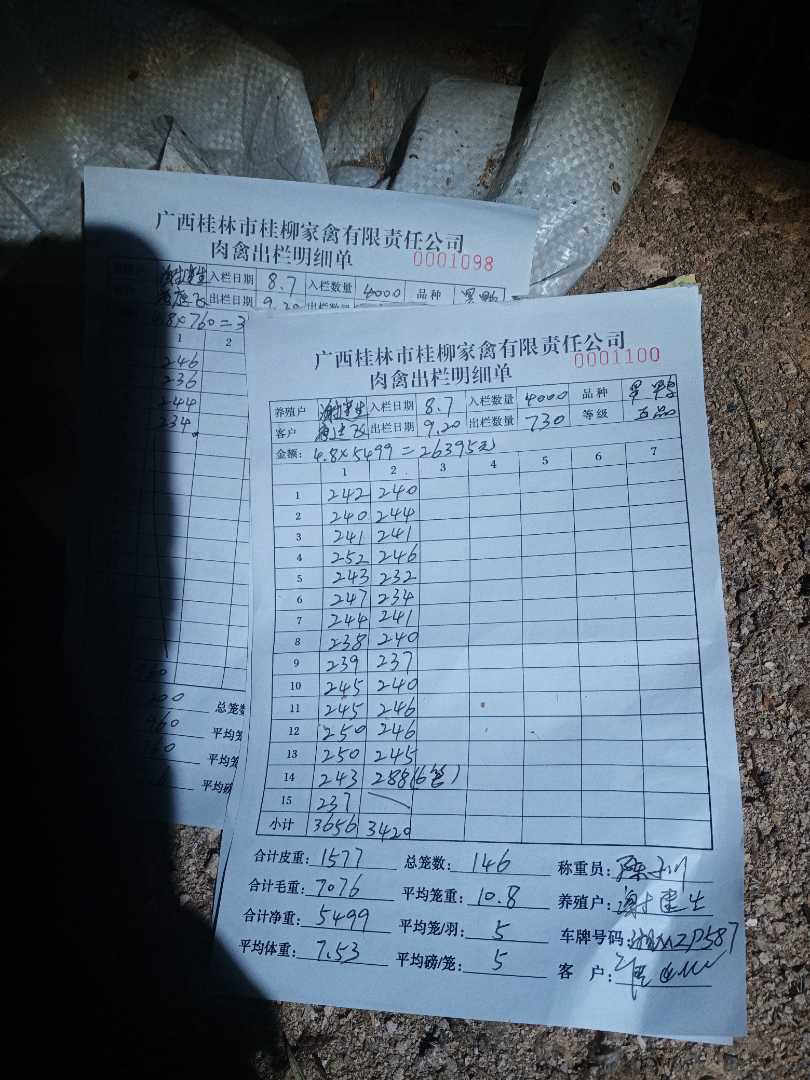 广西桂林市桂柳家禽有限责任公司
肉禽出栏明细单 0001098
入栏日期 8.7 入栏数量 4000 品种
出栏日期 9.20 出栏数量
4.8×760=3
1 2
246
236
244
234
总笼数
平均笼
平均笼
平均磅
广西桂林市桂柳家禽有限责任公司
肉禽出栏明细单 0001100
养殖户 谢建生 入栏日期 8.7 入栏数量 4000 品种
客户 出栏日期 9.20 出栏数量 730 等级
金额: 4.8×5499=26395元
1 2 3 4 5 6 7
1 242 240
2 240 244
3 241 241
4 252 246
5 243 232
6 247 234
7 244 241
8 238 240
9 239 237
10 245 240
11 245 246
12 250 246
13 250 245
14 243 288(6笼)
15 237
小计 3656 3420
合计皮重: 1577 总笼数: 146 称重员:
合计毛重: 7076 平均笼重: 10.8 养殖户: 谢建生
合计净重: 5499 平均笼/羽: 5 车牌号码: 湘MZP587
平均体重: 7.53 平均磅/笼: 5 客 户: